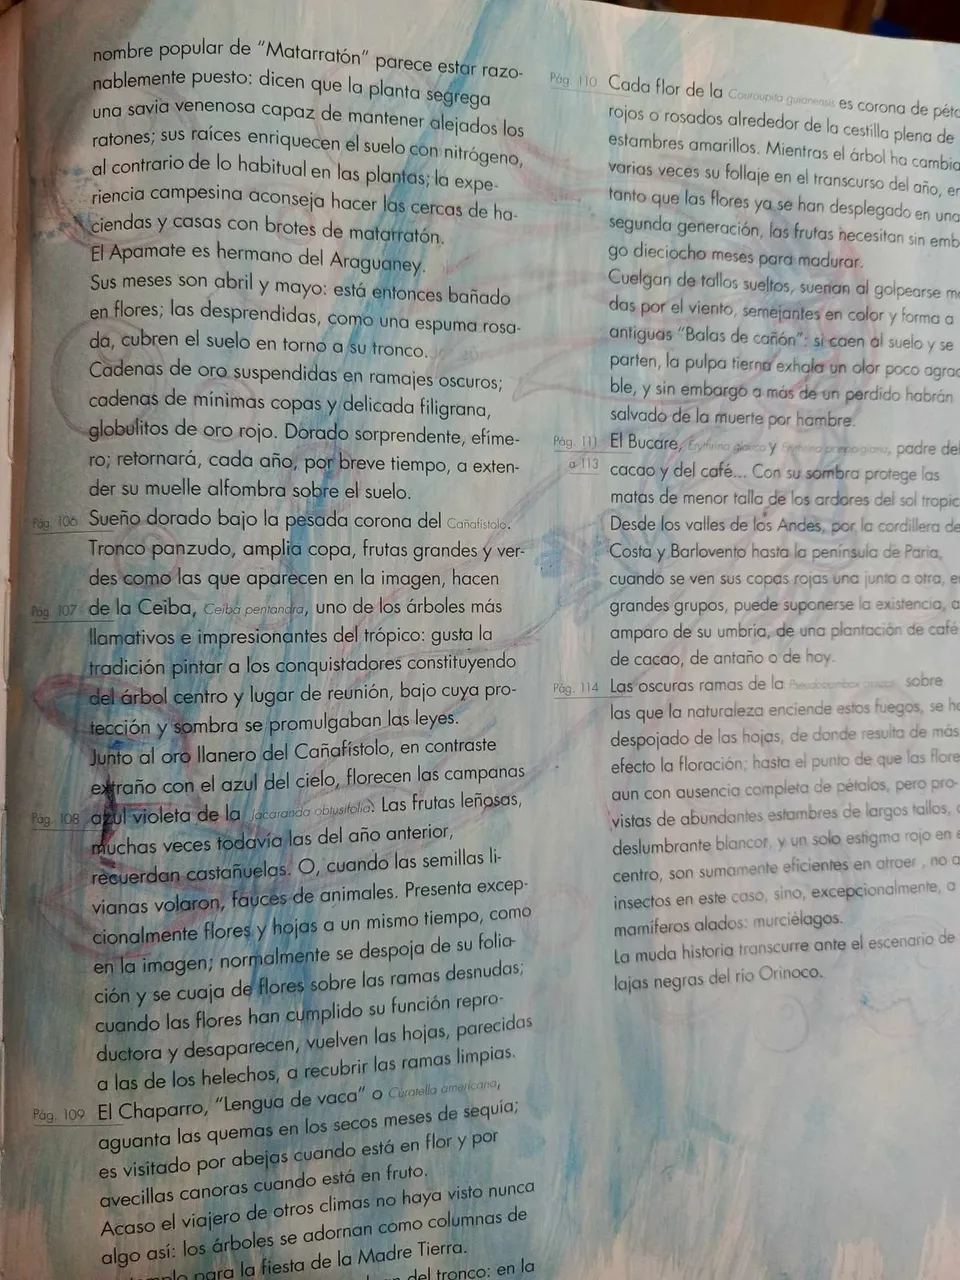 nombre popular de “Matarratón” parece estar razo-
nablemente puesto: dicen que la planta segrega
una savia venenosa capaz de mantener alejados los
ratones; sus raíces enriquecen el suelo con nitrógeno,
al contrario de lo habitual en las plantas; la expe-
riencia campesina aconseja hacer las cercas de ha-
ciendas y casas con brotes de matarratón.
El Apamate es hermano del Araguaney.
Sus meses son abril y mayo: está entonces bañado
en flores; las desprendidas, como una espuma rosa-
da, cubren el suelo en torno a su tronco.
Cadenas de oro suspendidas en ramajes oscuros;
cadenas de mínimas copas y delicada filigrana,
globulitos de oro rojo. Dorado sorprendente, efíme-
ro; retornará, cada año, por breve tiempo, a exten-
der su muelle alfombra sobre el suelo.
Pág. 106 Sueño dorado bajo la pesada corona del Cañafístolo.
Tronco panzudo, amplia copa, frutas grandes y ver-
des como las que aparecen en la imagen, hacen
Pág. 107 de la Ceiba, Ceiba pentandra, uno de los árboles más
llamativos e impresionantes del trópico: gusta la
tradición pintar a los conquistadores constituyendo
del árbol centro y lugar de reunión, bajo cuya pro-
tección y sombra se promulgaban las leyes.
Junto al oro llanero del Cañafístolo, en contraste
extraño con el azul del cielo, florecen las campanas
Pág. 108 azul violeta de la Jacaranda obtusifolia. Las frutas leñosas,
muchas veces todavía las del año anterior,
recuerdan castañuelas. O, cuando las semillas li-
vianas volaron, fauces de animales. Presenta excep-
cionalmente flores y hojas a un mismo tiempo, como
en la imagen; normalmente se despoja de su folia-
ción y se cuaja de flores sobre las ramas desnudas;
cuando las flores han cumplido su función repro-
ductora y desaparecen, vuelven las hojas, parecidas
a las de los helechos, a recubrir las ramas limpias.
Pág. 109 El Chaparro, “Lengua de vaca” o Curatella americana,
aguanta las quemas en los secos meses de sequía;
es visitado por abejas cuando está en flor y por
avecillas canoras cuando está en fruto.
Acaso el viajero de otros climas no haya visto nunca
algo así: los árboles se adornan como columnas de
para la fiesta de la Madre Tierra.
del tronco: en la
Pág. 110 Cada flor de la Couroupita guianensis es corona de péta
rojos o rosados alrededor de la cestilla plena de
estambres amarillos. Mientras el árbol ha cambia
varias veces su follaje en el transcurso del año, en
tanto que las flores ya se han desplegado en una
segunda generación, las frutas necesitan sin emb
go dieciocho meses para madurar.
Cuelgan de tallos sueltos, suenan al golpearse m
das por el viento, semejantes en color y forma a
antiguas “Balas de cañón”: si caen al suelo y se
parten, la pulpa tierna exhala un olor poco agrad
ble, y sin embargo a más de un perdido habrán
salvado de la muerte por hambre.
Pág. 111 El Bucare, Erythrina glauca y Erythrina poeppigiana, padre del
a 113 cacao y del café... Con su sombra protege las
matas de menor talla de los ardores del sol tropic
Desde los valles de los Andes, por la cordillera de
Costa y Barlovento hasta la península de Paria,
cuando se ven sus copas rojas una junto a otra, e
grandes grupos, puede suponerse la existencia, a
amparo de su umbría, de una plantación de café
de cacao, de antaño o de hoy.
Pág. 114 Las oscuras ramas de la sobre
las que la naturaleza enciende estos fuegos, se ha
despojado de las hojas, de donde resulta de más
efecto la floración; hasta el punto de que las flore
aun con ausencia completa de pétalos, pero pro-
vistas de abundantes estambres de largos tallos,
deslumbrante blancor, y un solo estigma rojo en e
centro, son sumamente eficientes en atraer , no a
insectos en este caso, sino, excepcionalmente, a
mamíferos alados: murciélagos.
La muda historia transcurre ante el escenario de
lajas negras del río Orinoco.